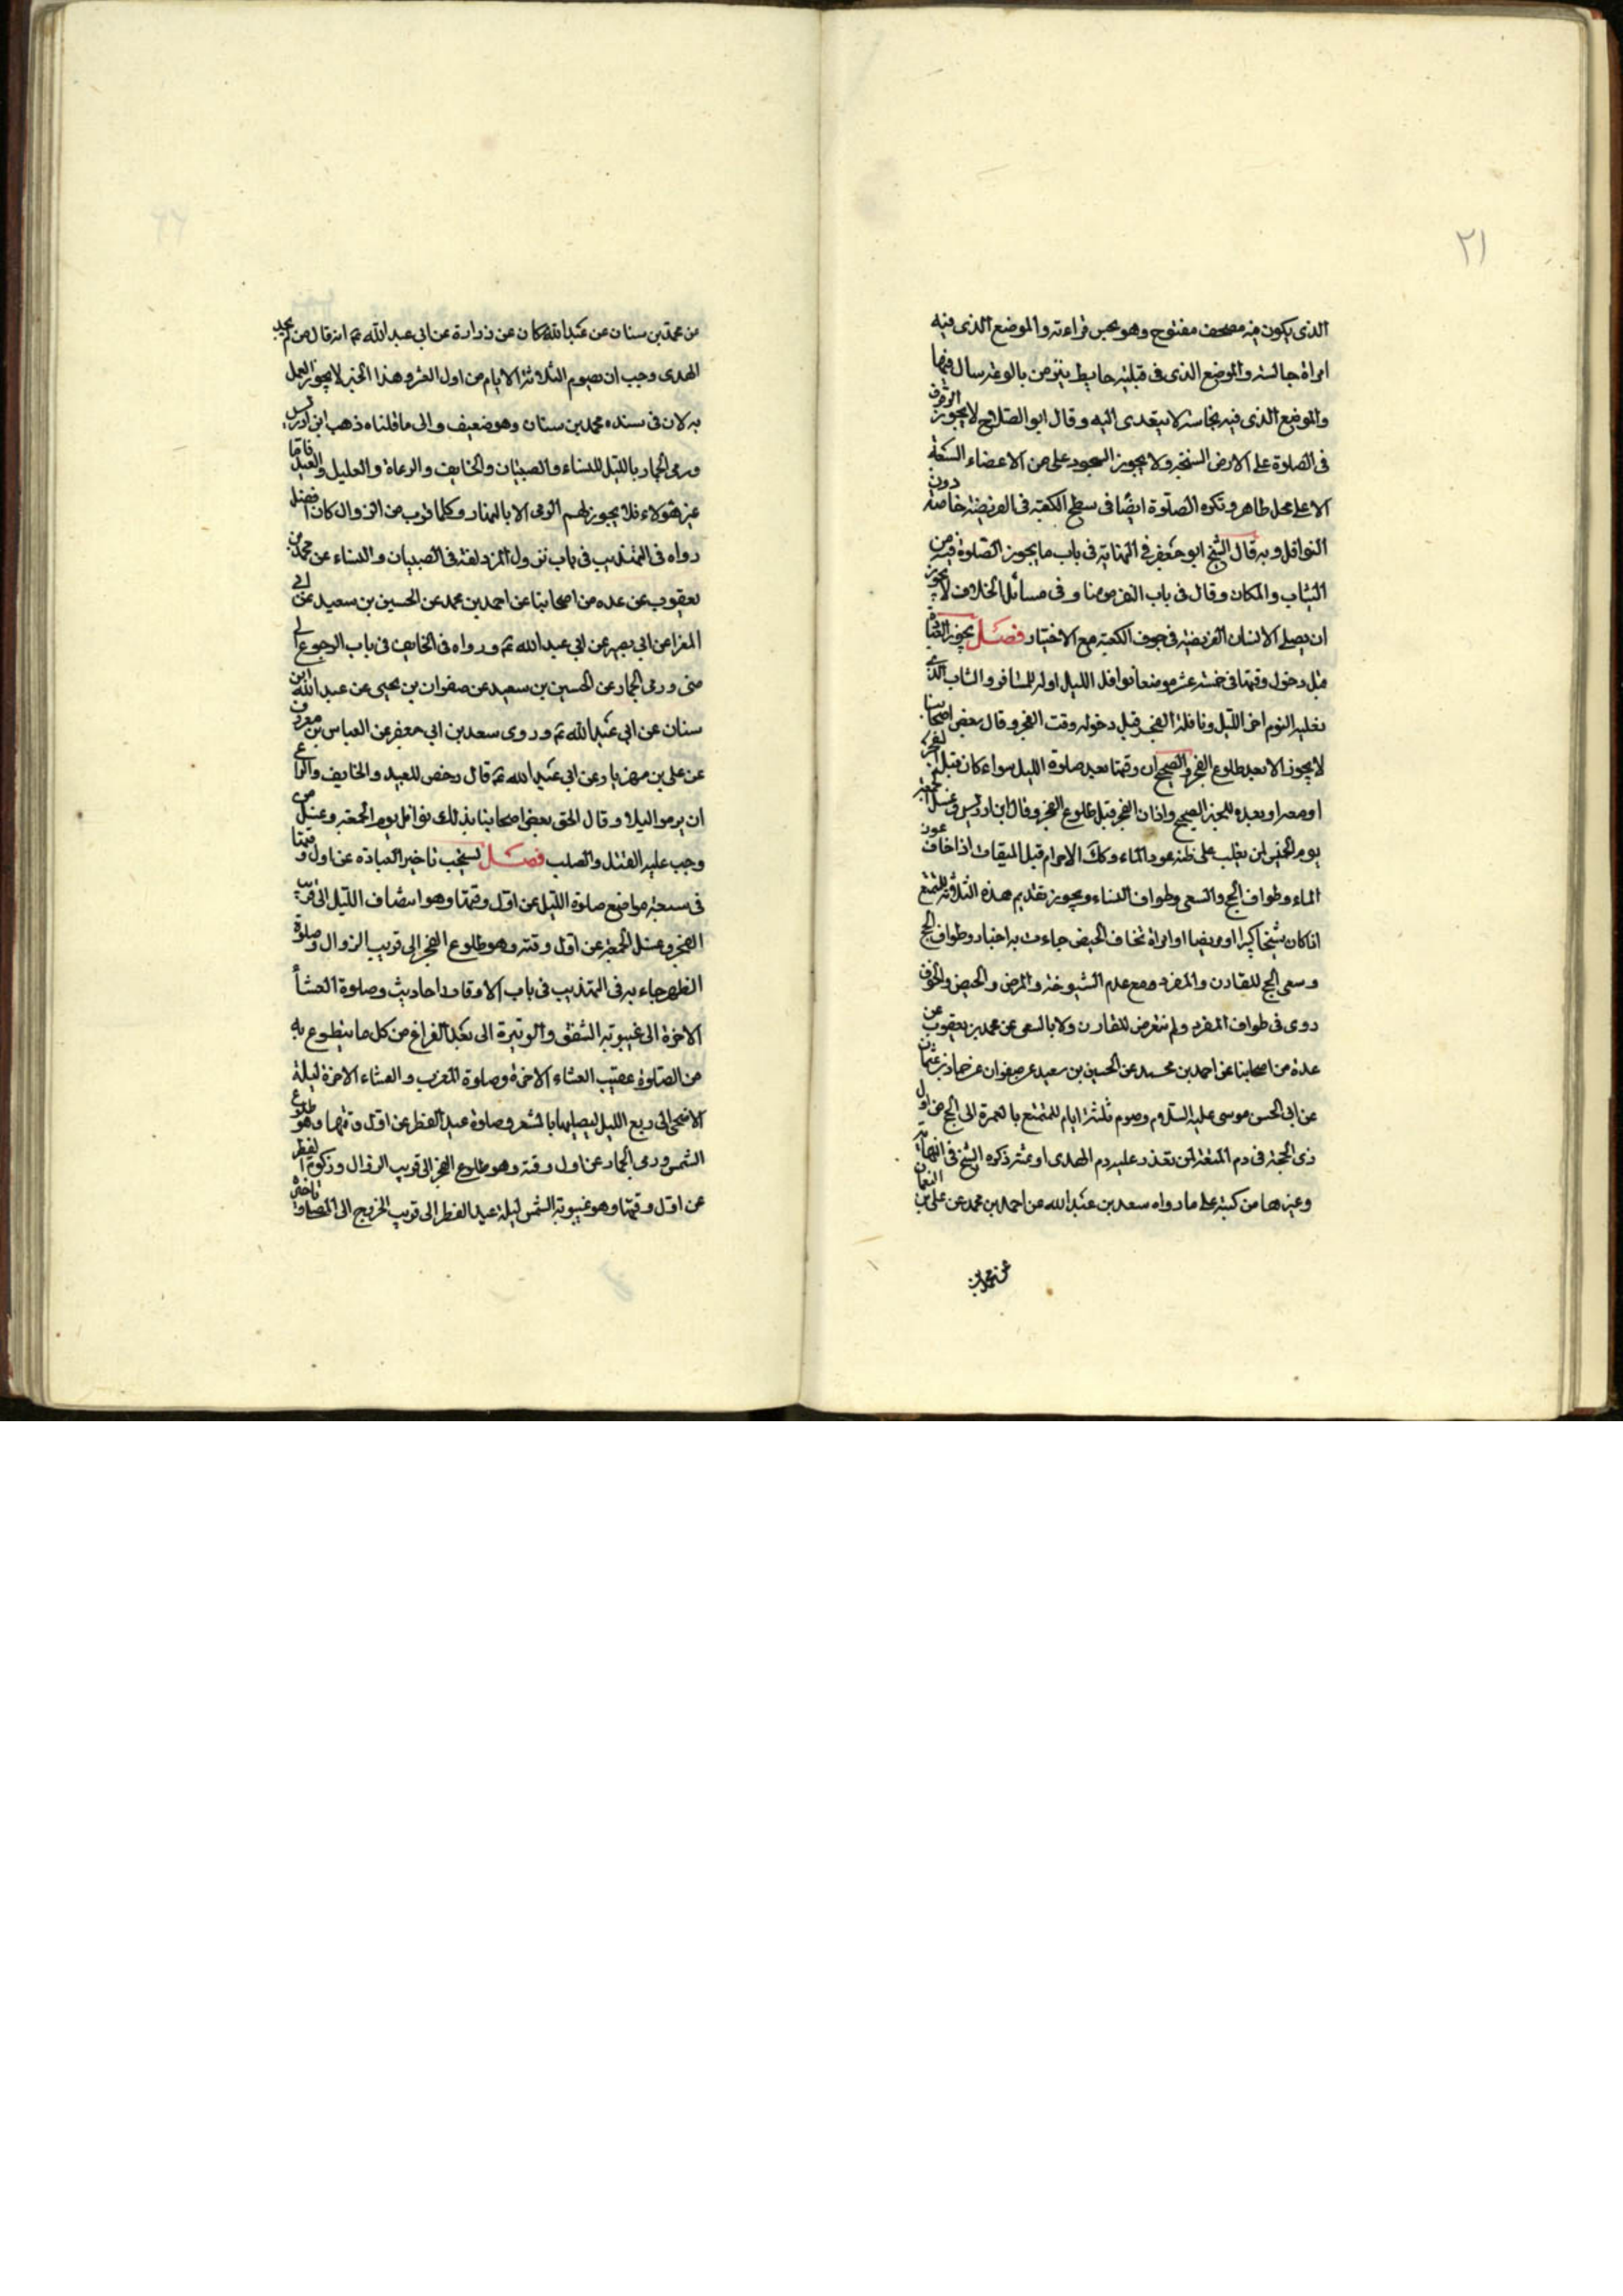 ٢١
الذى يكون فيه مصحف مفتوح وهو يحسن قراءته والموضع الذى فيه
امراة جالسة والموضع الذى فى قبلته حايط ينز من بالوعة يبال فيها
والموضع الذى فيه نجاسة لا يتعدى اليه وقال ابو الصلاح لا يجوز الوقوف
فى الصلوة على الارض السبخة ولا يجوز السجود على من الاعضاء السبعة
الا على محل طاهر وتكره الصلوة ايضا فى سطح الكعبة فى الفريضة خاصة دون
النوافل وبه قال الشيخ ابو جعفر فى النهاية فى باب ما يجوز الصلوة فيه من
الثياب والمكان وقال فى باب الفرض منا وفى مسائل الخلاف لا يجوز
ان يصلى الانسان الفريضة فى جوف الكعبة مع الاختيار فصل يجوز العبادة
قبل دخول وقتها فى خمسة عشر موضعا نوافل الليل اوله للمسافر والشاب الذى
يغلبه النوم اخر الليل ونافلة الفجر قبل دخوله وقت الفجر وقال بعض اصحابنا
لا يجوز الا بعد طلوع الفجر والصحيح ان وقتها بعد صلوة الليل سواء كان قبل الفجر
او معه او بعده للخبر الصحيح واذان الفجر قبل طلوع الفجر وقال ابن ادريس وغسل الجمعة
يوم الخميس لمن يغلب على ظنه عوز الماء وكك الاحرام قبل الميقات اذا خاف عوز
الماء وطواف الحج والسعى وطواف النساء ويجوز تقديم هذه الثلاثة للمتمتع
اذا كان شيخا كبيرا او مريضا او امراة تخاف الحيض جاءت به اخبار وطواف الحج
وسعى الحج للقارن والمفرد مع عدم الشيوخة والمرض والحيض والخوف
روى فى طواف المفرد ولم يتعرض للقارن ولا بالسعى عن محمد بن يعقوب عن
عدة من اصحابنا عن احمد بن محمد عن الحسين بن سعيد عن صفوان عن حماد بن عثمان
عن ابى الحسن موسى عليه السلام وصوم ثلثة ايام للمتمتع بالعمرة الى الحج من اول
ذى الحجة فى دم المتعة لمن تعذر عليه دم الهدى او ثمنه ذكره الشيخ فى النهاية
وغيرها من كتبه على ما رواه سعد بن عبد الله عن احمد بن محمد عن على بن النعمان
عن محمد بن
عن محمد بن سنان عن عبد الله مسكان عن زرارة عن ابى عبد الله ع انه قال من لم يجد
الهدى وجب ان يصوم الثلاثة الايام من اول العشر وهذا الخبر لا يجوز العمل
به لان فى سنده محمد بن سنان وهو ضعيف والى ما قلناه ذهب ابن ادريس
ورمى الجمار بالليل للنساء والصبيان والخايف والرعاة والعليل والعبيد فاما
غير هؤلاء فلا يجوز لهم الرمى الا بالنهار وكلما قرب من الزوال كان افضل
رواه فى التهذيب فى باب نزول المزدلفة فى الصبيان والنساء عن محمد بن
يعقوب عن عده من اصحابنا عن احمد بن محمد عن الحسين بن سعيد عن ابى
المغرا عن ابى بصير عن ابى عبد الله ع ورواه فى الخايف فى باب الرجوع الى
منى ورمى الجمار عن الحسين بن سعيد عن صفوان بن يحيى عن عبد الله ابن
سنان عن ابى عبد الله ع وروى سعد بن ابى جعفر عن العباس بن معروف
عن على بن مهزيار عن ابى عبد الله ع قال رخص للعبيد والخايف والراعى
ان يرموا ليلا وقال الحق بعض اصحابنا بذلك نوافل يوم الجمعة وغسل من
وجب عليه القتل والصلب فصل يستحب تاخير العبادة عن اول وقتها
فى سبعة مواضع صلوة الليل عن اول وقتها وهو انتصاف الليل الى قرب
الفجر وغسل الجمعة عن اول وقته وهو طلوع الفجر الى قريب الزوال وصلوة
الظهر جاء به فى التهذيب فى باب الاوقات احاديث وصلوة العشا
الاخرة الى غيبوبة الشفق والوتيرة الى بعد الفراغ من كل ما يتطوع به
من الصلوة عقيب العشاء الاخرة وصلوة المغرب والعشاء الاخرة ليلة
الاضحى الى ربع الليل ليصليها بالمشعر وصلوة عيد الفطر عن اول وقتها وهو طلوع
الشمس ورمى الجمار عن اول وقته وهو طلوع الفجر الى قريب الزوال وزكوة الفطر
عن اول وقتها وهو غيبوبة الشمس ليلة عيد الفطر الى قريب الخروج الى المصلى وتاخير